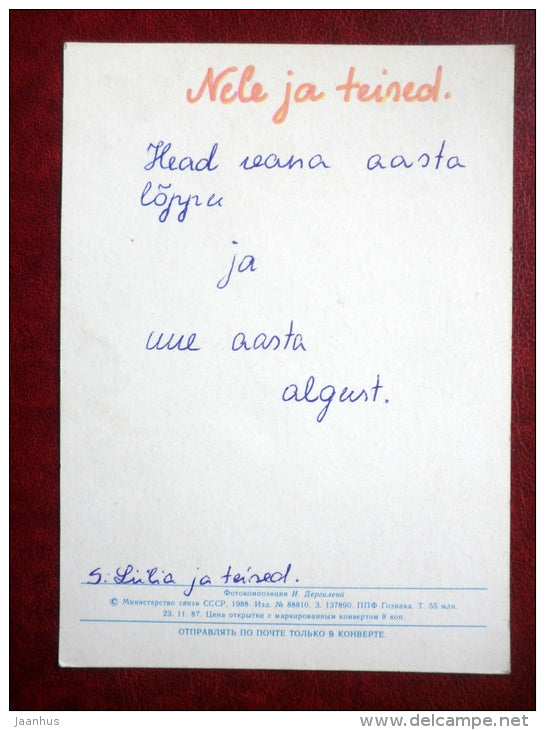 Nele ja teised.
Head vana aasta
lõppu
ja
uue aasta
algust.
S: Liilia ja teised.
Фотокомпозиция И. Дергилева
© Министерство связи СССР, 1988. Изд. № 88810. З. 137890. ППФ Гознака. Т. 55 млн.
23. 11. 87. Цена открытки с маркированным конвертом 8 коп.
ОТПРАВЛЯТЬ ПО ПОЧТЕ ТОЛЬКО В КОНВЕРТЕ.
jaanhus
www.delcampe.net